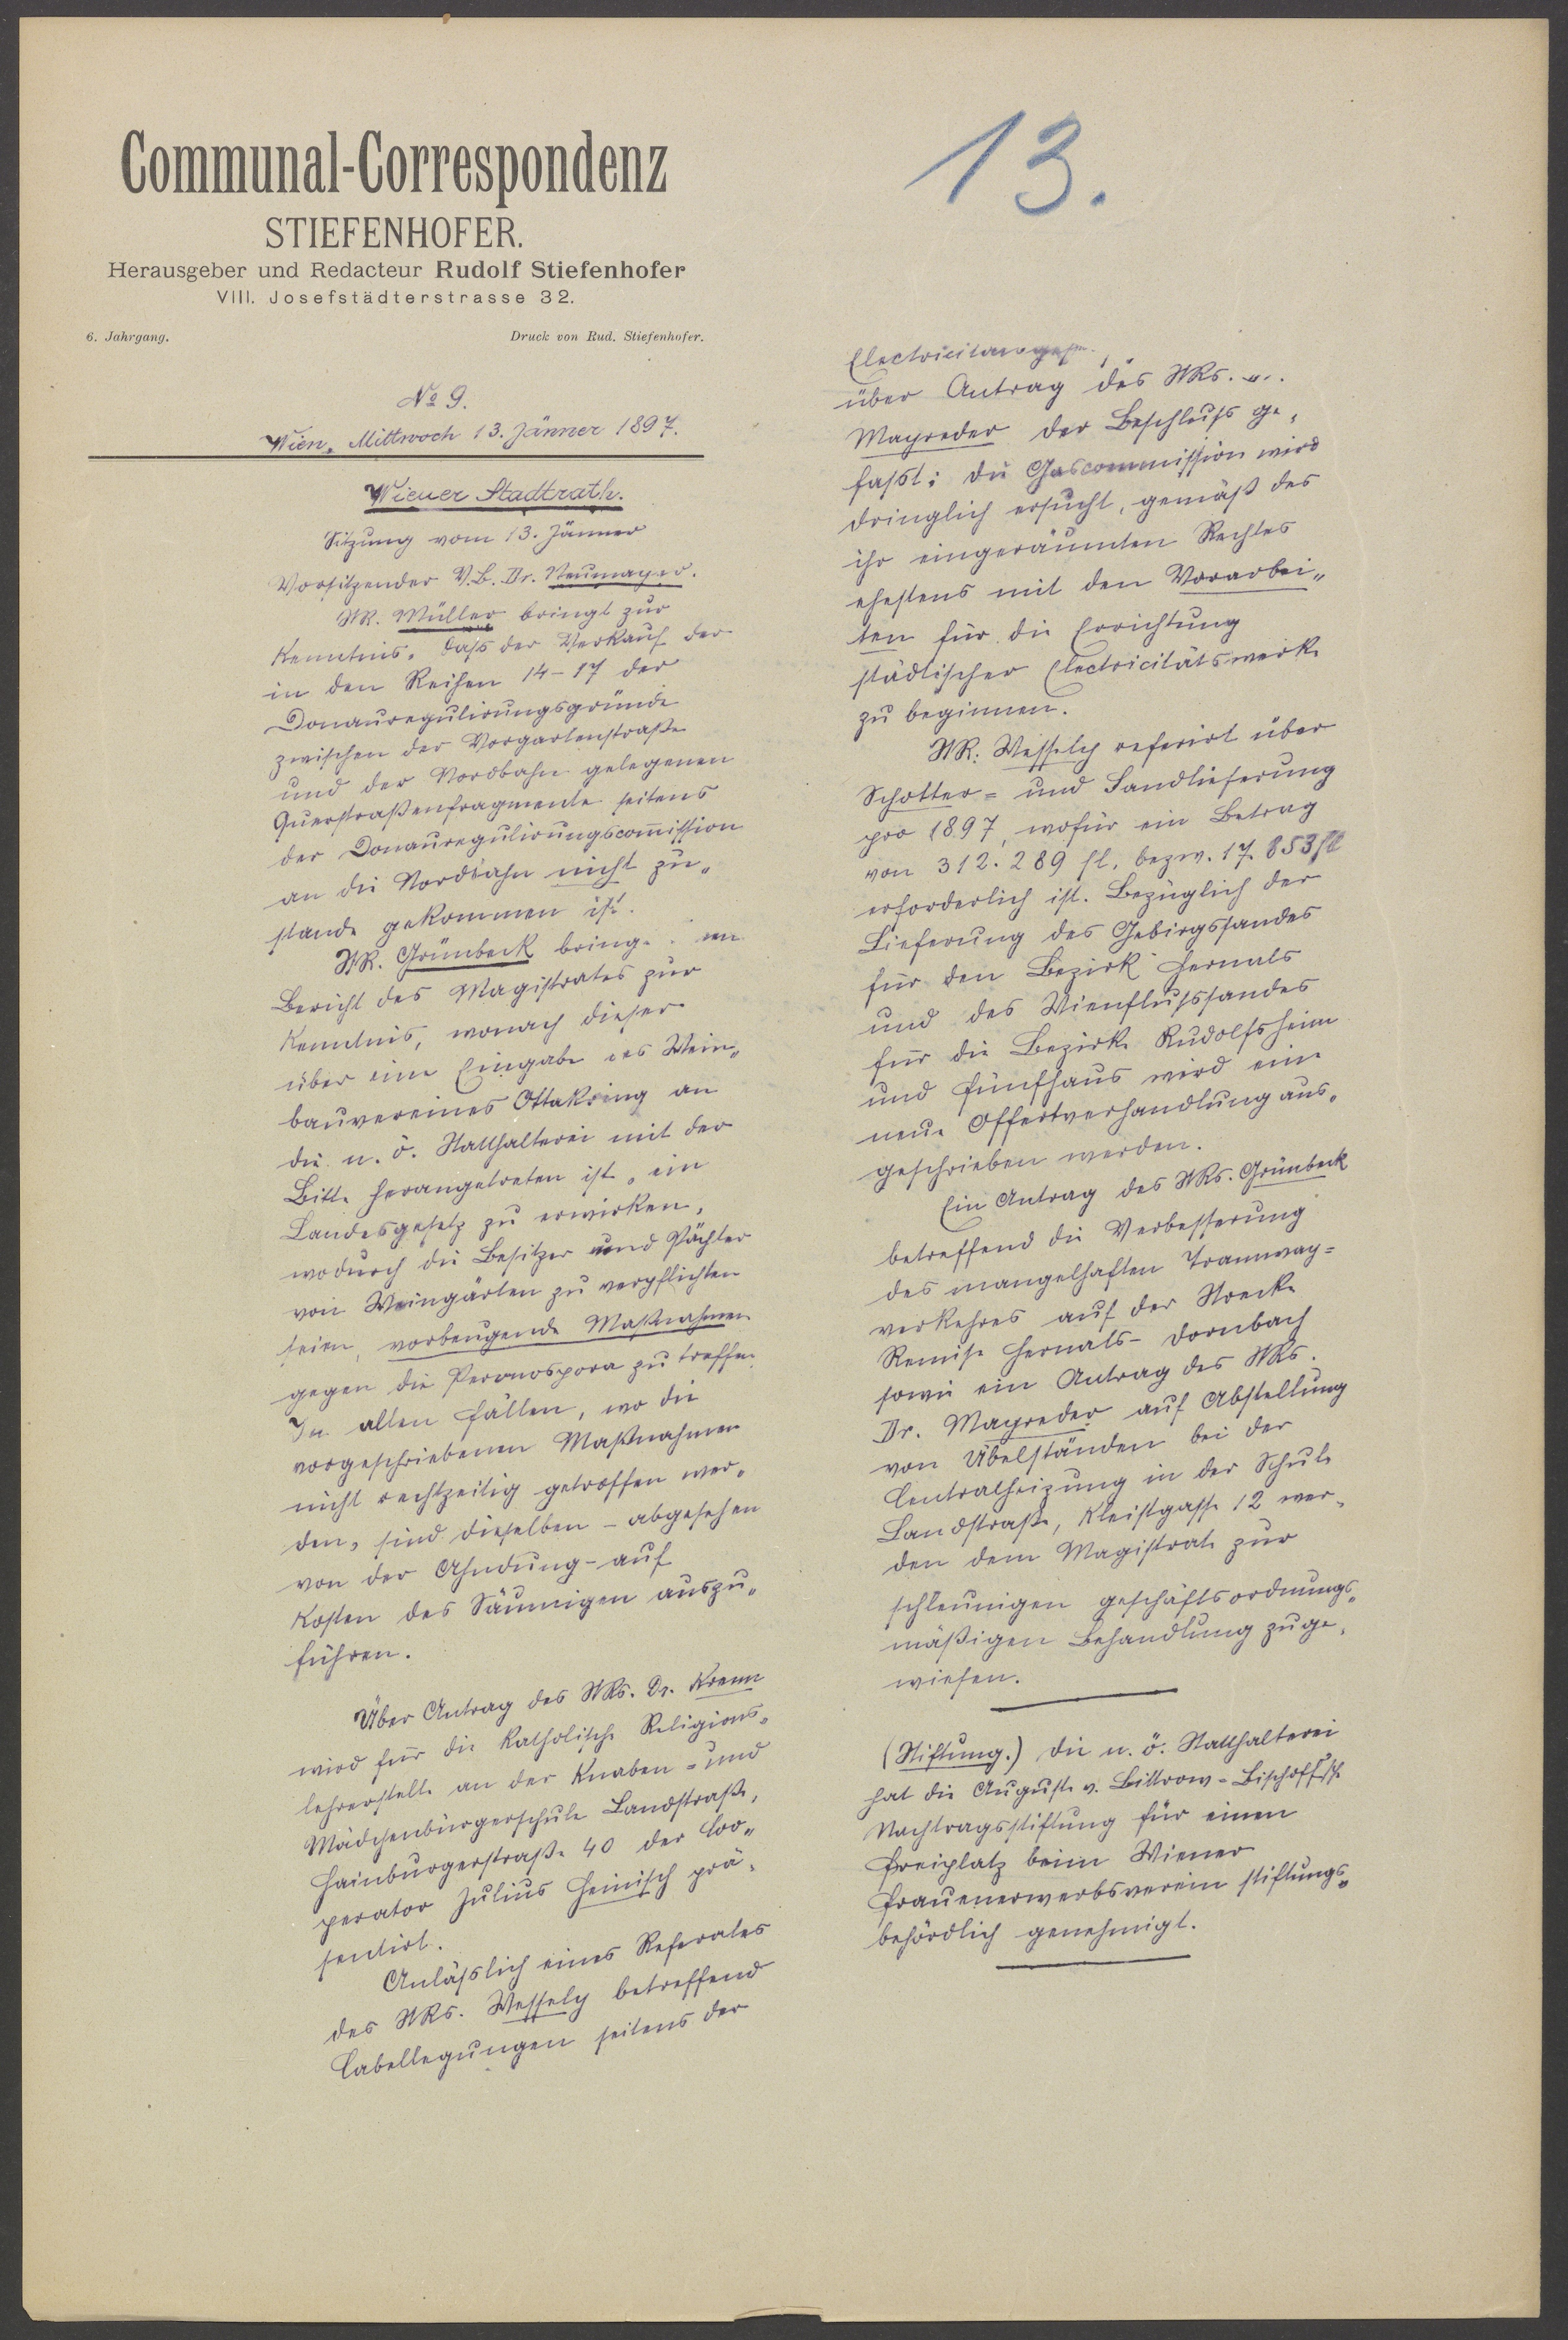 Communal-Correspondenz
STIEFENHOFER.
Herausgeber und Redacteur Rudolf Stiefenhofer
VIII. Josefstädterstrasse 32.
6. Jahrgang. Druck von Rud. Stiefenhofer.
No 9.
Wien, Mittwoch 13. Jänner 1897.
Wiener Stadtrath.
Sitzung vom 13. Jänner
Vorsitzender V.B. Dr. Neumayer.
StR. Müller bringt zur
Kenntnis, daſs der Verkauf der
in den Reihen 14-17 der
Donauregulirungsgründe
zwischen der Vorgartenstraße
und der Nordbahn gelegenen
Querstraßenfragmente seitens
der Donauregulirungscom̄ission
an die Nordbahn nicht zu„
stande gekommen ist.
StR. Grünbeck bring
Bericht des Magistrates zur
Kenntnis, wonach dieser
über eine Eingabe des Wein„
bauvereines Ottakring an
die n. ö. Statthalterei mit der
Bitte herangetreten ist, ein
Landesgesetz zu erwirken,
wodurch die Besitzer und Pächter
von Weingärten zu verpflichten
seien, vorbeugende Maßnahmen
gegen die Peronospora zu treffen.
In allen Fällen, wo die
vorgeschriebenen Maßnahmen
nicht rechtzeitig getroffen wer„
den, sind dieselben - abgesehen
von der Ahndung - auf
Kosten des Säumigen auszu„
führen.
Über Antrag des StRs. Dr. Krenn
wird für die katholische Religions„
lehrerstelle an der Knaben = und
Mädchenbürgerschule Landstraße,
Hainburgerstraße 40 der Coo„
perator Julius Heinisch prä„
sentirt.
Anläſslich eines Referates
des StRs. Wessely betreffend
Cabellegungen seitens der
13.
über Antrag des StRs.
Mayreder der Beschluſs ge„
faſst: die Gascommission wird
dringlich ersucht, gemäß des
ihr eingeräumten Rechtes
ehestens mit den Vorarbei„
ten für die Errichtung
städtischer Electricitätswerke
zu beginnen.
StR. Wessely referirt über
Schotter = und Sandlieferung
pro 1897, wofür ein Betrag
von 312.289 fl. bezw. 17.853 fl
erforderlich ist. Bezüglich der
Lieferung des Gebirgssandes
für den Bezirk Hernals
und des Wienfluſssandes
für die Bezirke Rudolfsheim
und Fünfhaus wird eine
neue Offertverhandlung aus„
geschrieben werden.
Ein Antrag des StRs. Grünbeck
betreffend die Verbesserung
des mangelhaften Tramway=
verkehres auf der Strecke
Remise Hernals - Dornbach
sowie ein Antrag des StRs.
Dr. Mayreder auf Abstellung
von Übelständen bei der
Centralheizung in der Schule
Landstraße, Kleistgasse 12 wer„
den dem Magistrate zur
schleunigen geschäftsordnungs„
mäßigen Behandlung zuge„
wiesen.
(Stiftung.) Die n. ö. Statthalterei
hat die Auguste v. Littrow-Bischoff'sche
Nachtragsstiftung für einen
Freiplatz beim Wiener
Frauenerwerbsverein stiftungs„
behördlich genehmigt.